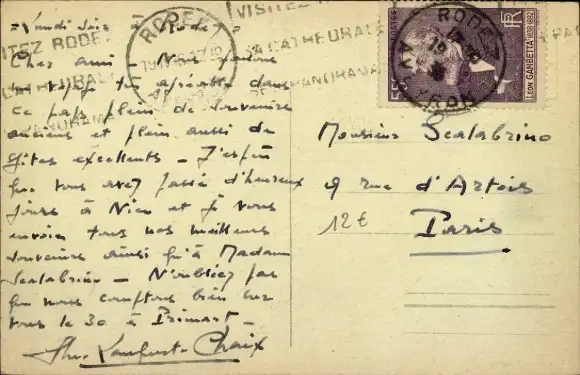 Jeudi soir à Rodez
Cher ami - Nous faisons
un voyage très agréable dans
ce pays plein de souvenirs
anciens et plein aussi de
gîtes excellents - J'espère
que vous avez passé d'heureux
jours à Nice et je vous
envoie tous nos meilleurs
souvenirs ainsi qu'à Madame
Scalabrino - N'oubliez pas
que nous comptons bien sur
vous le 30 à
Chaix
RODEZ
AVEYRON
VISITEZ RODEZ
SA CATHEDRALE
PANORAMA
POSTES
RF
55c
LÉON GAMBETTA 1838-1882
Monsieur Scalabrino
9 rue d'Artois
12 €
Paris